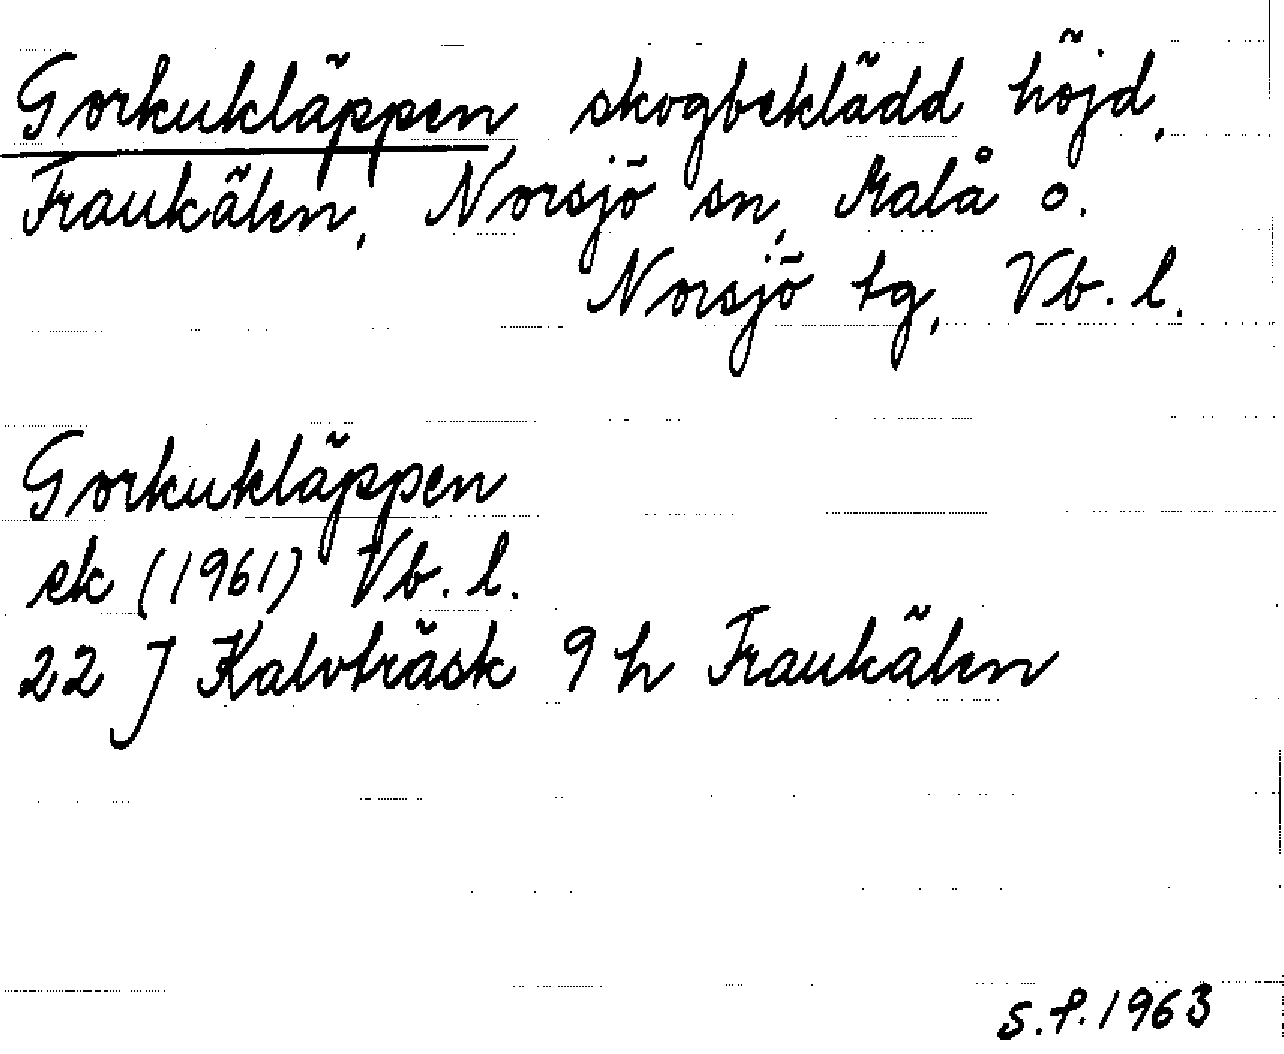 Gorkukläppen skogbeklädd höjd,
Fraukälen, Norsjö sn, Malå o.
Norsjö tg, Vb. l.
Gorkukläppen
ek (1961) Vb. l.
22 J Kalvträsk 9 h Fraukälen
S.P. 1963